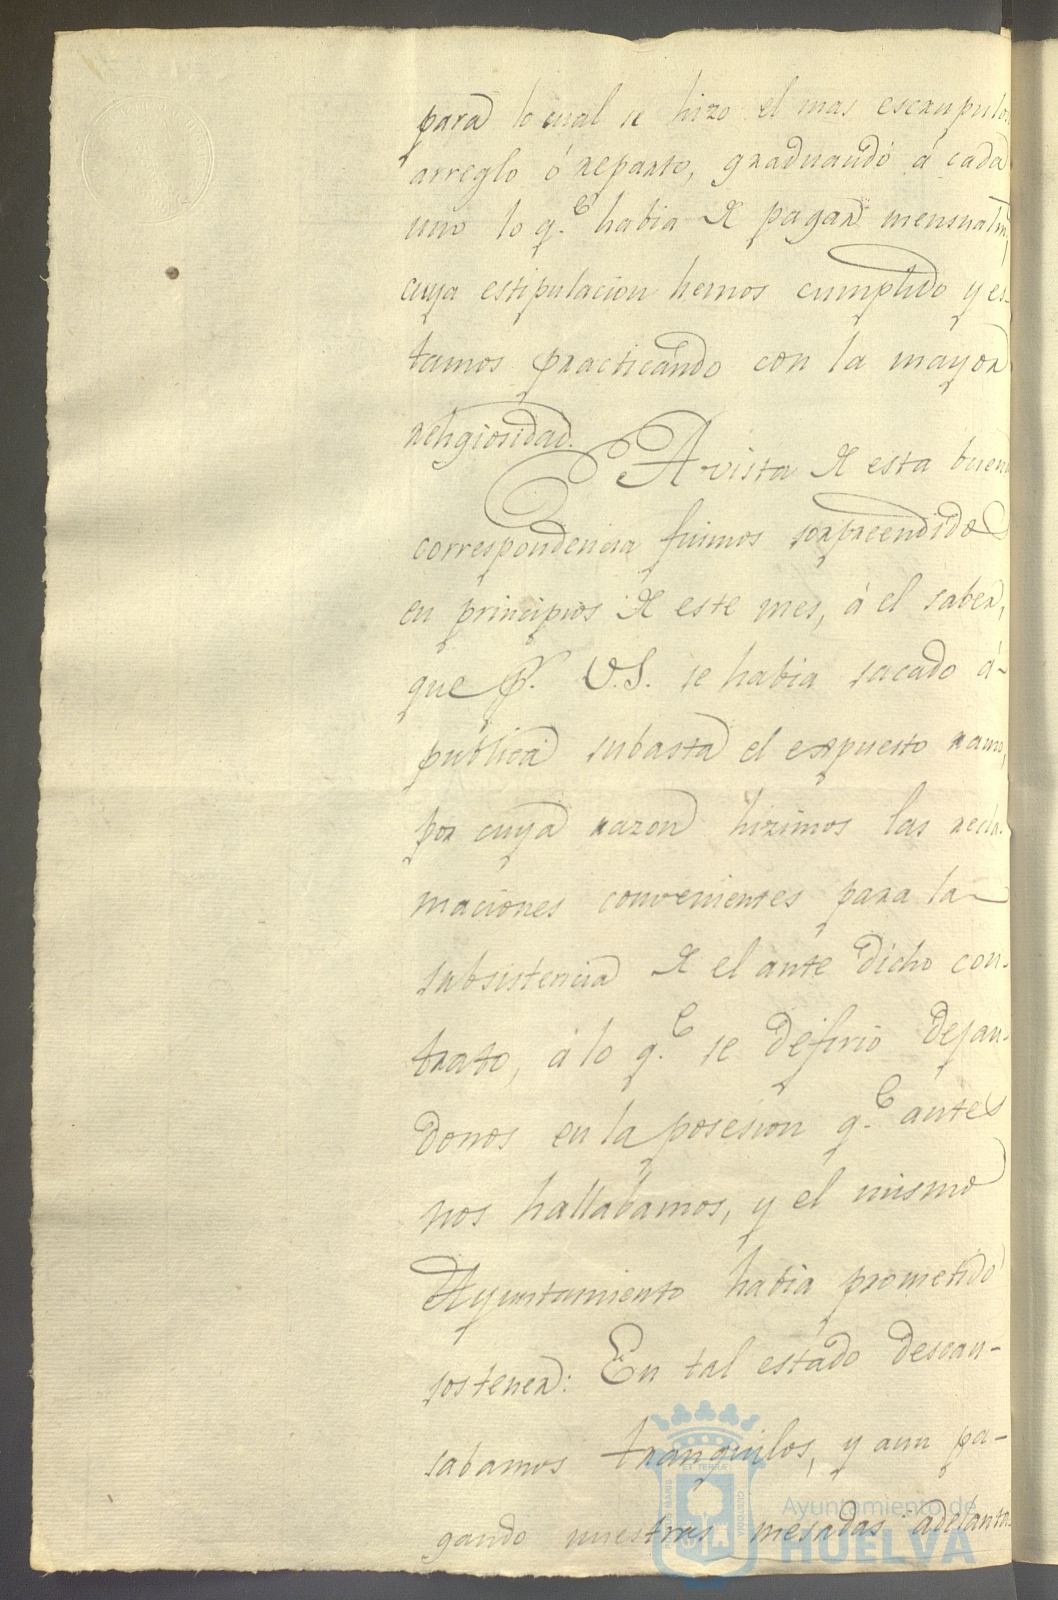 para lo cual se hizo el mas escrupulo
arreglo ó reparto, graduando á cada
uno lo q.e habia de pagar mensualm,
cuya estipulacion hemos cumplido y es-
tamos practicando con la mayor
religiosidad.
A vista de esta buena
correspondencia fuimos sorprendidos
en principios de este mes, á el saber,
que p.r V.S. se habia sacado á-
publica subasta el expuesto ramo,
por cuya razon hizimos las recla-
maciones convenientes para la
subsistencia de el ante dicho con-
trato, á lo q.e se defirio dejan-
donos en la posesion q.e antes
nos hallabamos, y el mismo
Ayuntamiento habia prometido
sostener: En tal estado descan-
sabamos tranquilos, y aun pa-
gando nuestras mesadas adelanta-
Ayuntamiento de
HUELVA